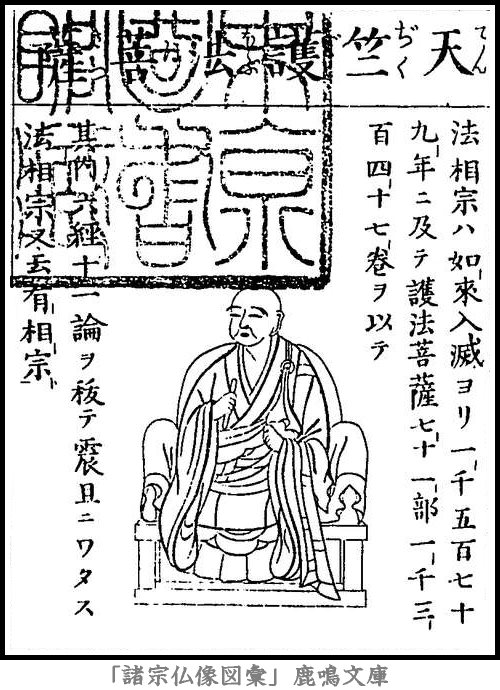 天竺護法菩薩
法相宗ハ如來入滅ヨリ一千五百七十
九年ニ及テ護法菩薩七十一部一千三
百四十七卷ヲ以テ
其內六經十一論ヲ拔テ震旦ニワタス
法相宗又云有相宗ト
「諸宗仏像図彙」鹿鳴文庫